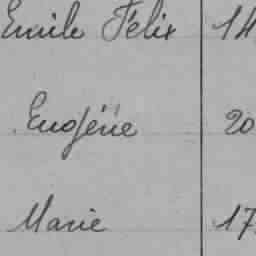 Emile Félix 14
Eugénie 20
Marie 17